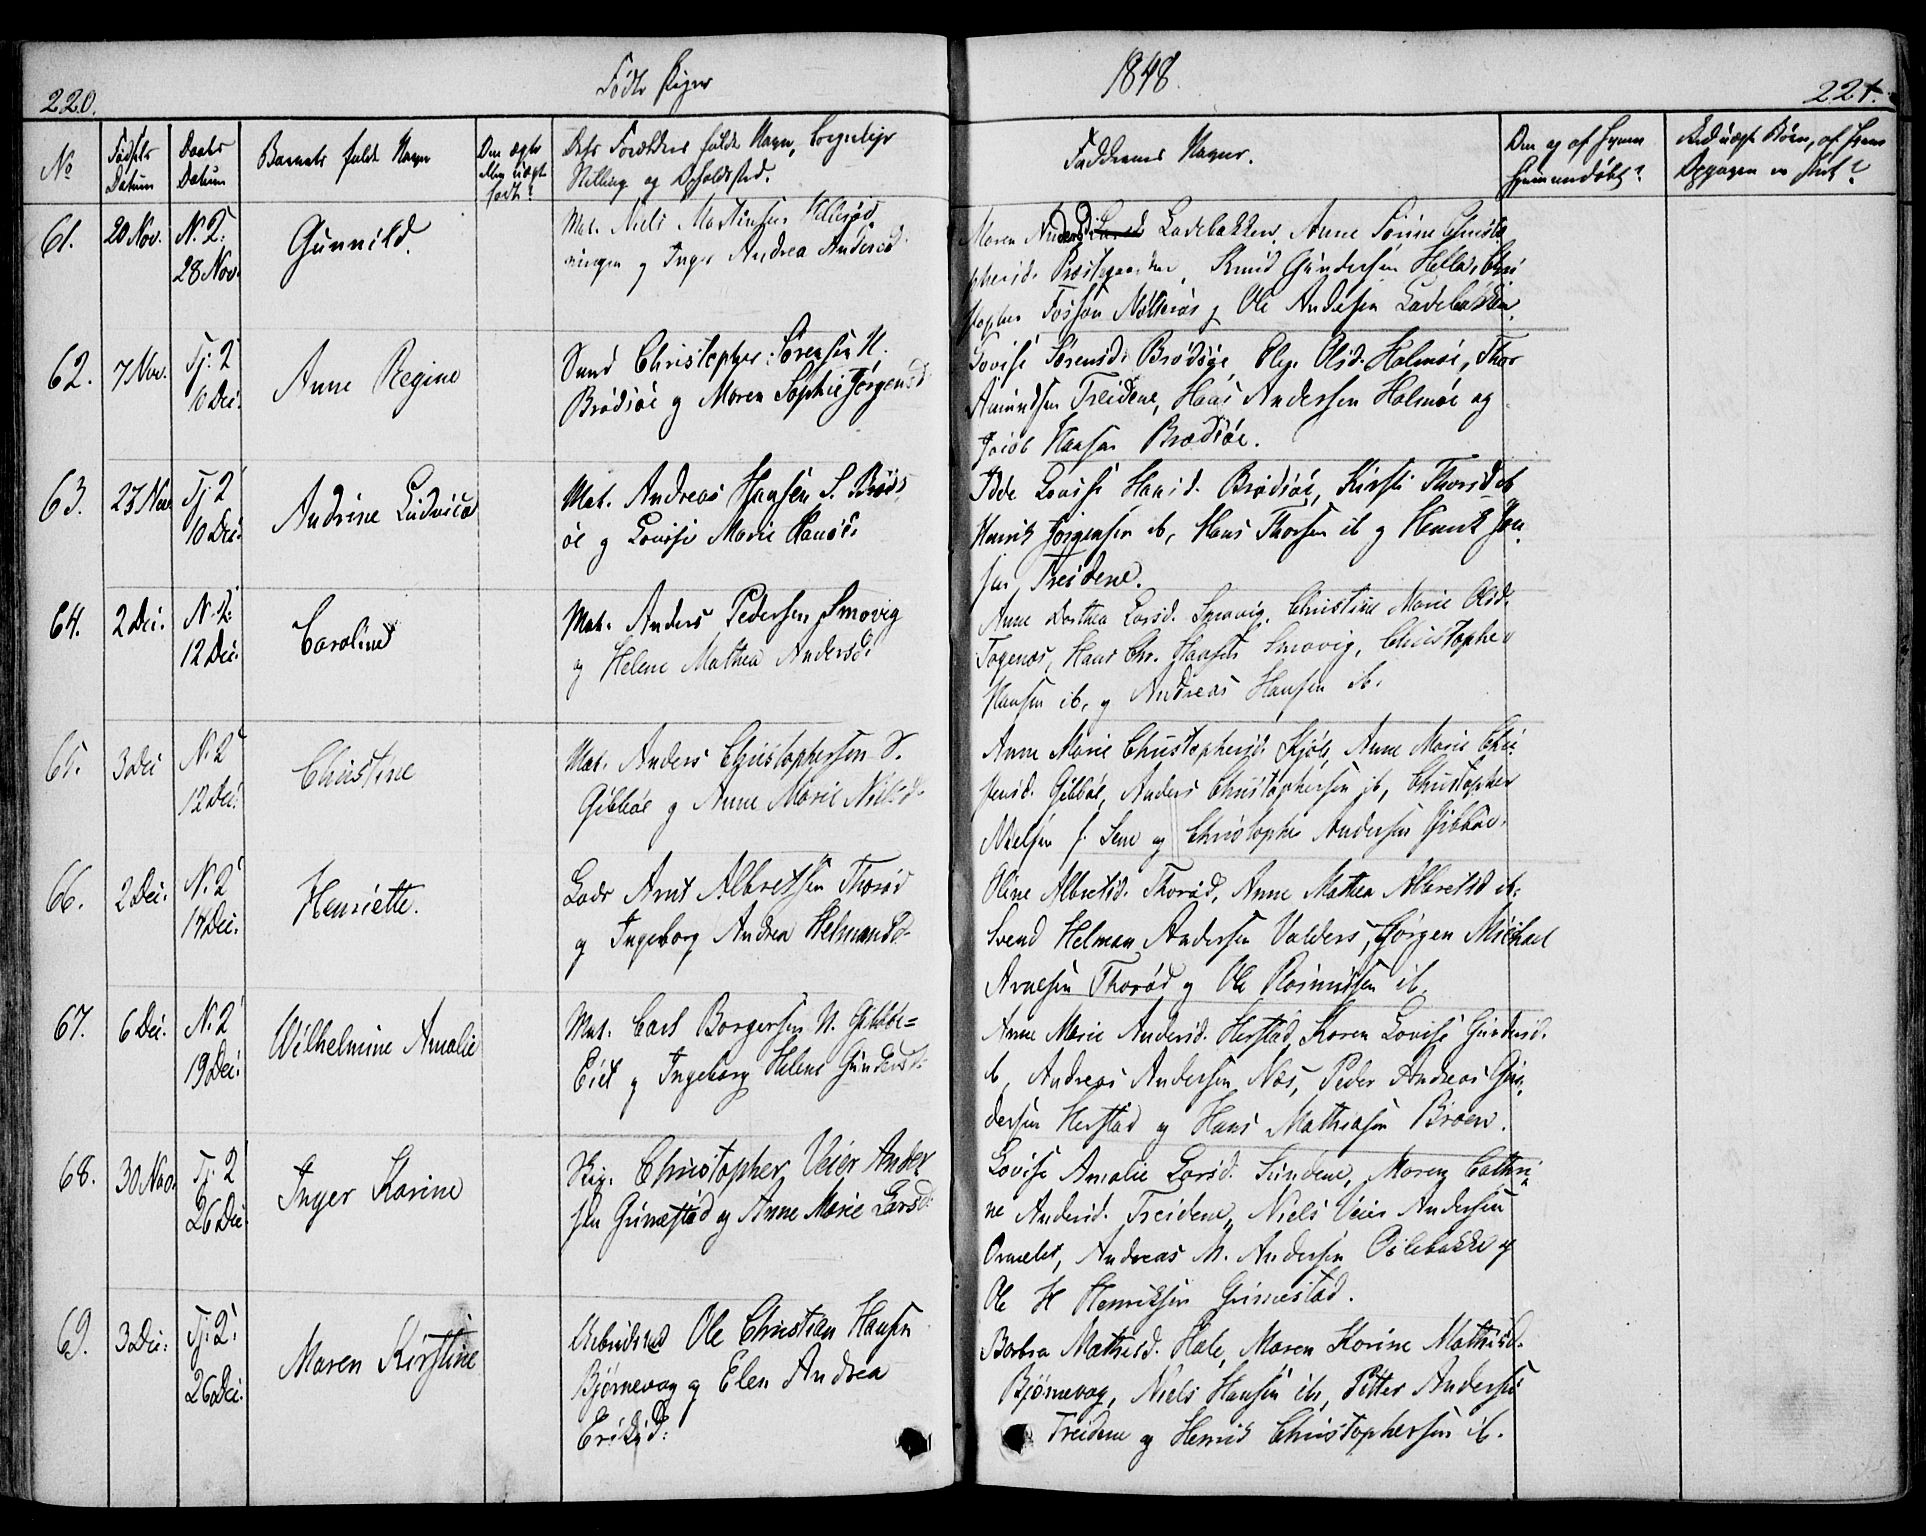 220.
Fødte Piger
1848.
221.
No
Fødsels Datum
Daabs Datum
Barnets fulde Navn
Om ægte eller uægte født?
Dets Forældres fulde Navn, borgerlige Stilling og Opholdssted.
Faddernes Navne.
Om og af hvem hjemmedøbt?
Ved uægte Børn, af hvem Opgaven er skeet?
61.
20 Nov.
N. 2:
28 Nov.
Gunnild.
Mat. Niels Martinsen
og Inger Andrea Andersd.
Maren Andersd. Ladebakken, Anne Sørine Christo
phersd. Præstegaarden, Knud Gundersen Hella, Chri
stopher og Ole Andersen Ladebakken.
62.
7 Nov.
Tj: 2
10 Dec:
Anne Regine
Christopher Sørensen N.
Brødsøe og Maren Sophie Jørgensd
Lovise Sørensd. Brødsøe, Olsd. Holmøe, Thor
Amundsen Treidene, Hans Andersen Holmøe og
Jacob Hansen Brødsøe.
63.
27 Nov
Tj. 2
10 Dec:
Andrine Ludvica
Mat. Andreas Hansen S. Brøds
øe og Lovise Marie Hansd:
Lovise Hansd. Brødsøe, Kirsti Thorsd ib
Henrik Jørgensen ib, Hans Thorsen ib og Henrik Jen
sen, Treidene.
64.
2 Dec:
N. 2:
12 Dec:
Caroline
Mat. Anders Pedersen Smovig
og Helene Mathea Andersd:
Anne Dorthea Larsd. Smovig, Christine Marie Olsd.
Hans Chr. Hansen Smovig, Christopher
Hansen ib, og Andreas Hansen ib.
65.
3 Dec
N. 2
12 Dec:
Christine
Mat. Anders Christophersen S.
Gibbøe og Anne Marie Nielsd.
Anne Marie Christophersd. Anne Marie Chri
stensd. Gibbøe, Anders Christophersen ib, Christopher
Nielsen og Christopher Andersen Gibbøe.
66.
2 Dec:
N. 2
17 Dec:
Henriette.
Lods Arnt Albretsen Thorød
og Ingeborg Andrea Helmansd.
Oline Albretsd. Thorød, Anne Mathea Albretsd ib.
Svend Helman Andersen Valders, Jørgen Michael
Arnesen Thorød og Ole Rasmussen ib.
67.
6 Dec:
N. 2
19 Dec:
Wilhelmine Amalie
Mat. Carl Borgersen N. Gibbøe=
Eiet og Ingeborg Helene Gundersd:
Anne Marie Andersd. Herstad, Karen Lovise Gundersd.
ib, Andreas Andersen Næs, Peder Andreas Gun
dersen Herstad og Hans Mathiasen Broen.
68.
30 Nov.
Tj: 2
26 Dec:
Inger Karine
Skip. Christopher Veier Ander
sen Grimestad og Anne Marie Larsd:
Lovise Amalie Larsd. Sundene, Maren Cathri
ne Andersd. Treidene, Niels Veier Andersen
Ormelet, Andreas M. Andersen Oslebakke og
Ole H Henriksen Grimestad.
69.
3 Dec:
Tj: 2:
26 Dec:
Maren Kirstine
Ole Christian Hansen
Bjørnevog og Elen Andrea
Eriksd:
Barbra Mathisd. Hale, Maren Karine Mathisd.
Bjørnevog, Niels Hansen ib, Petter Andersen
Treidene og Henrik Christophersen ib.